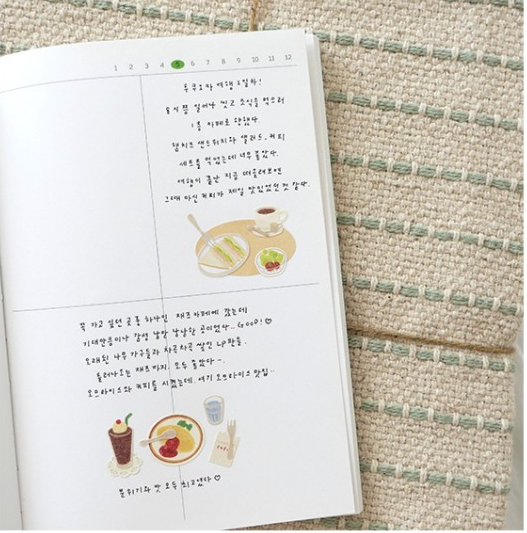 1 2 3 4 5 6 7 8 9 10 11 12
후쿠오카 여행 2일차!
8시쯤 일어나 씻고 조식을 먹으러
1층 카페로 향했다.
햄치즈 샌드위치와 샐러드, 커피
세트를 먹었는데 너무 좋았다.
여행이 끝난 지금 떠올려보면
그때 마신 커피가 제일 맛있었던것 같다.
꼭 가고 싶던 곳중 하나인 재즈카페에 갔는데
기대만큼이나 감성 낭만 낭낭한 곳이었다.. GOOD! ♡
오래된 나무 가구들과 차곡차곡 쌓인 LP판들.
흘러나오는 재즈까지. 모두 좋았다~.
오므라이스와 커피를 시켰는데, 여기 오므라이스 맛집..
분위기와 맛 모두 최고였다 ♡